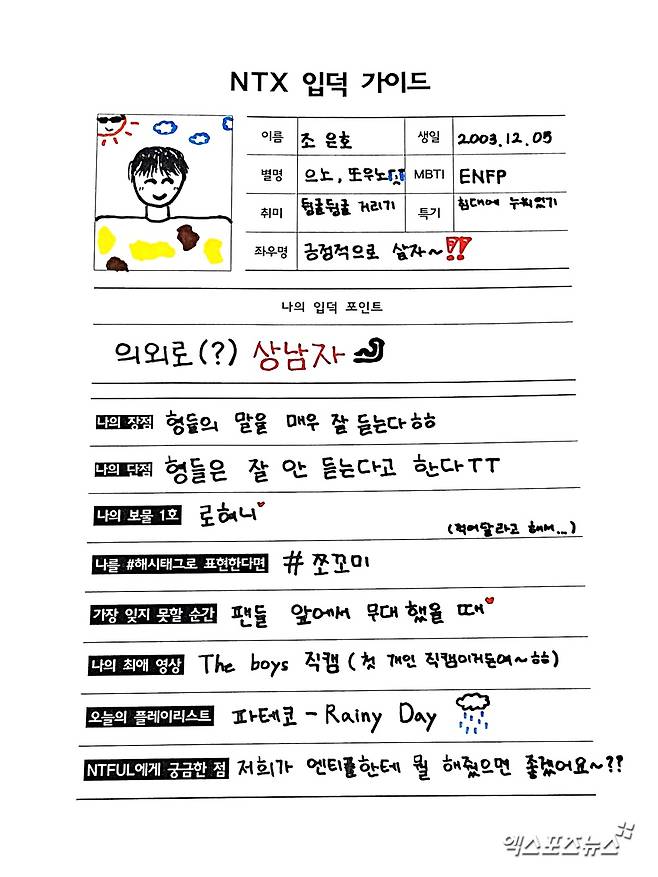 NTX 입덕 가이드
이름 조 은호 생일 2003.12.05
별명 으노, 또우노 MBTI ENFP
취미 뒹굴뒹굴 거리기 특기 침대에 누워있기
좌우명 긍정적으로 살자~!!
나의 입덕 포인트
의외로(?) 상남자
나의 장점 형들의 말을 매우 잘 듣는다ㅎㅎ
나의 단점 형들은 잘 안 듣는다고 한다ㅜㅜ
나의 보물 1호 로혀니♥ (적어달라고 해서...)
나를 #해시태그로 표현한다면 #쪼꼬미
가장 잊지 못할 순간 팬들 앞에서 무대했을 때♥
나의 최애 영상 The boys 직캠 (첫 개인 직캠이거든여~ㅎㅎ)
오늘의 플레이리스트 파테코 - Rainy Day
NTFUL에게 궁금한 점 저희가 엔티풀한테 뭘 해줬으면 좋겠어요~??
엑스포츠뉴스